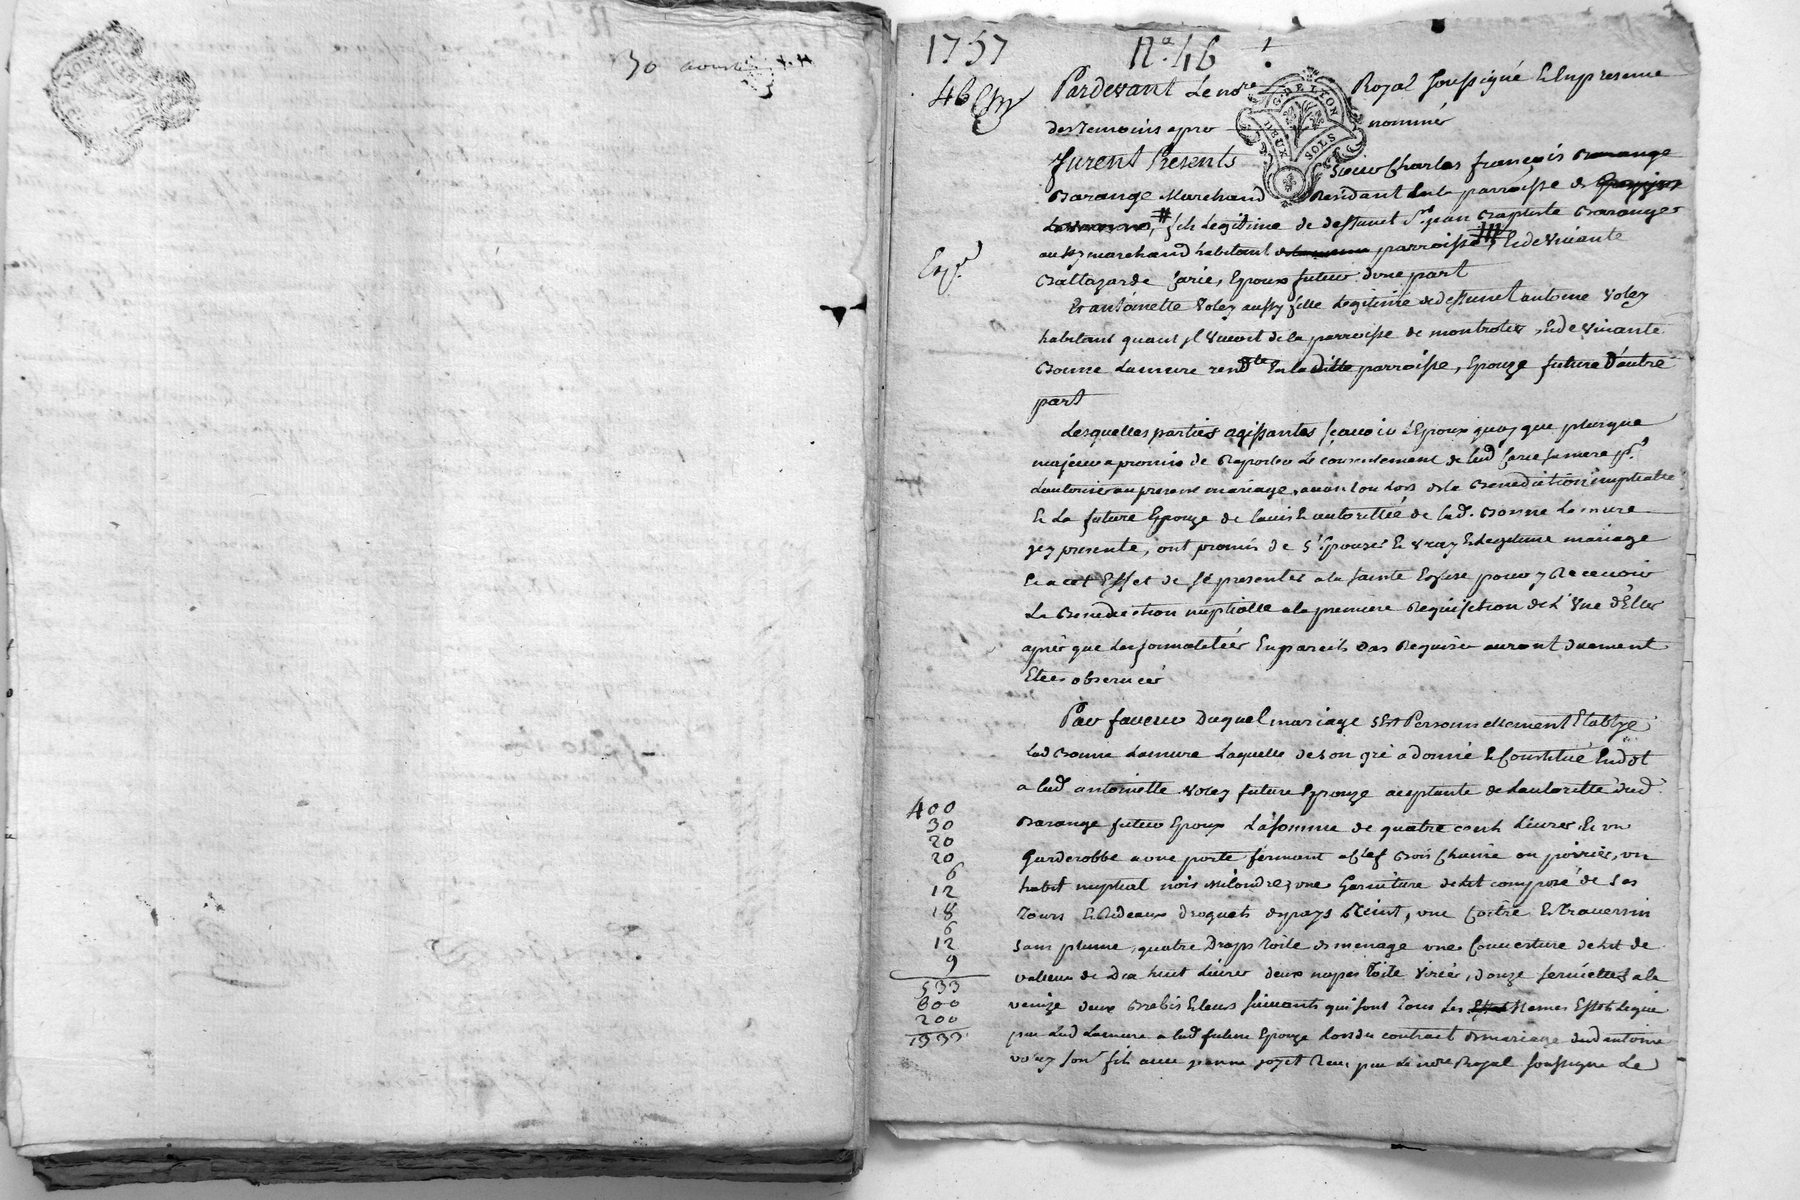 30 aoust
1757 No. 46
46 Cm
Pardevant Le nore Royal soussigné & En presence
des Temoins apres nommés
furent Presents Sieur Charles françois Barange
GNAL. LYON DEUX SOLS
Barange Marchand Residant En la parroisse de
fils Legitime de deffunt Sr. jean Baptiste Baranges
aussy marchand habitant parroisse, & de vivante
Baltazarde Carie, Epoux futur d'une part
Et antoinette Voley aussy fille Legitime de deffunt antoine Voley
habitant quant il vivoit de la parroisse de montrotier, & de vivante
Bonne Lamure rendte En la ditte parroisse, Epouze future D'autre
part
Lesquelles parties agissantes sçavoir L'Epoux quoy que plusque
majeur a promis de Raporter Le consentement de lad. Carie sa mere pr.
L'autoriser au present mariage, avant ou Lors de la Benediction nuptialle
& La future Epouze de l'avis & autorittée de lad. Bonne Lamure
icy presente, ont promis de s'Epouser En vray & Legitime mariage
& a cet Effet de se presenter a la sainte Eglise pour y Recevoir
La Benediction nuptialle a la premiere Requisition de L'Une d'Elles
après que Les formalitées En pareils Cas Requises auront duement
Etées observées
Par faveur Duquel mariage s'est Personnellement Etablye
Lad Bonne Lamure Laquelle de son gré a donné & Constitué En dot
a lad antoinette Voley future Epouze aceptante de L'autoritté dud.
Barange futur Epoux La somme de quatre cent Livres & un
Garderobbe a une porte fermant a Clef Bois Chaine ou poirier, un
habit nuptial noir, une Garniture de Lit composé de ses
Tours & Rideaux droguets du pays Teint, une Coitre & Traversin
sans plume, quatre Draps Toile de menage une Couverture de Lit de
valleur de Dix huit Livres deux napes Toile, douze serviettes a la
venize deux Brebis & leurs suivants qui sont Tous Les memes Effets Legué
par Lad Lamure a lad future Epouze Lors du contrat de mariage dud antoine
voley son fils avec jeanne Reçu par Le nore Royal soussigné Le
400
30
20
20
6
12
18
6
12
9
533
600
200
1333